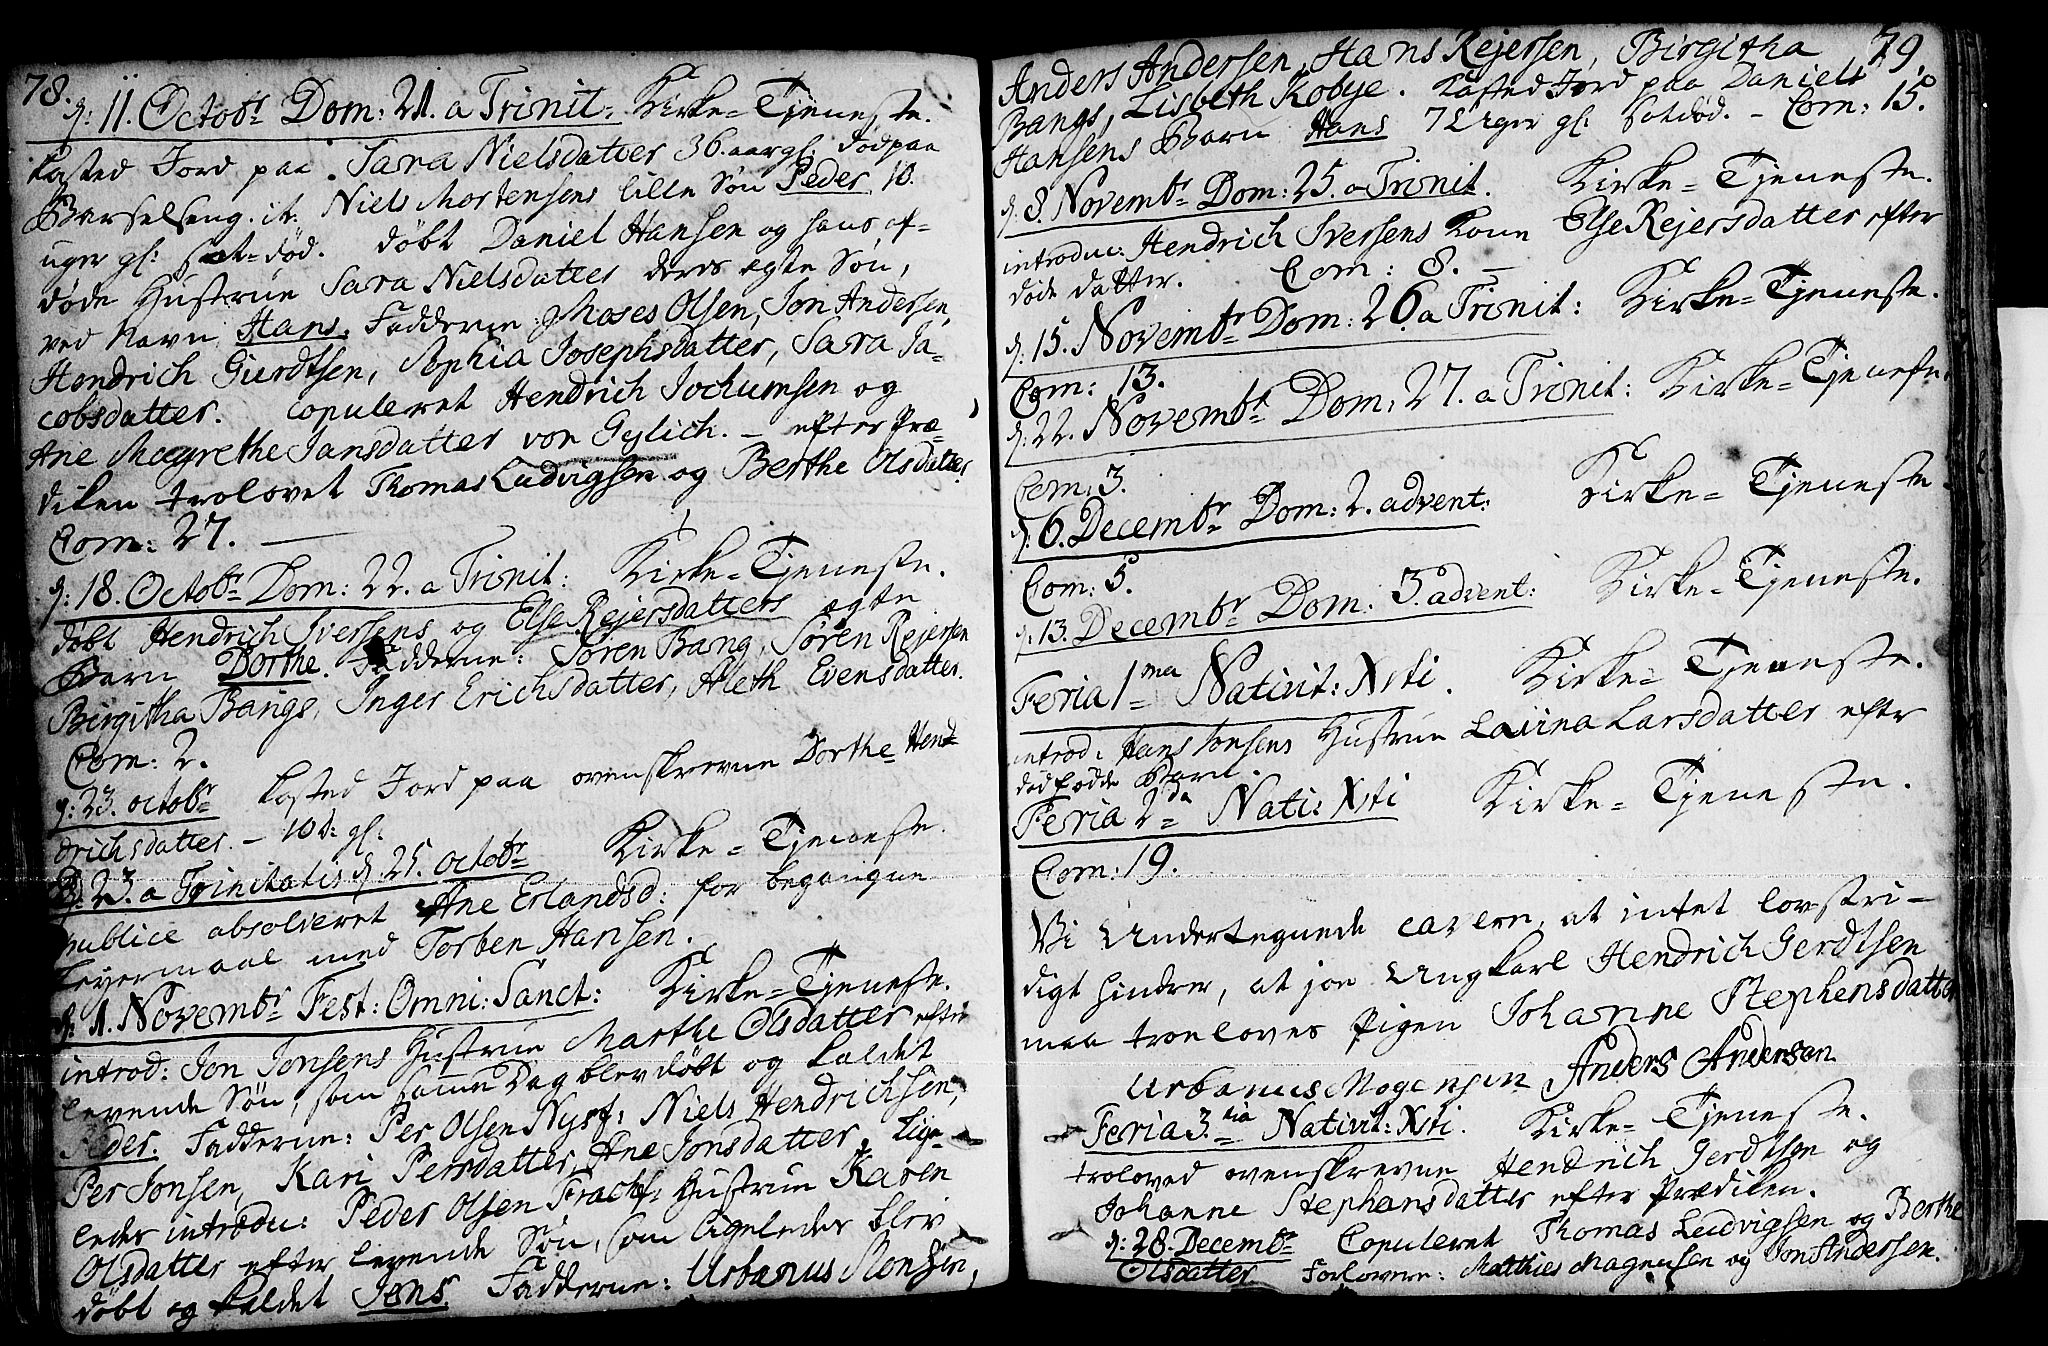 78.
d: 11. Octobr Dom: 21. a Trinit: Kirke-Tjeneste.
kasted Jord paa Sara Nielsdatter 36. aar gl: død paa
Barselseng. it: Niels Mortensens lille Søn Peder 10.
uger gl: sot-død. døbt Daniel Hansen og hans af-
døde Hustrue Sara Nielsdatter deres ægte Søn,
ved Navn Hans. Fadderne: Moses Olsen, Jon Andersen,
Hendrich Giurdtsen, Sophia Josephsdatter, Sara Ja-
cobsdatter. copuleret Hendrich Jochumsen og
Ane Magrethe Jansdatter von Gylich. – efter Præ-
diken trolovet Thomas Ludvigsen og Berthe Olsdatter.
Com: 27. —
d: 18. Octobr Dom: 22. a Trinit: Kirke-Tjeneste.
døbt Hendrich Iversens og Else Rejersdatters ægte
Barn Dorthe. Fadderne: Søren Bang, Søren Rejersen
Birgitha Bangs, Inger Erichsdatter, Aleth Evensdatter.
Com: 2.
d: 23. octobr kasted Jord paa ovenskrevne Dorthe Hen-
drichsdatter. – 10 d: gl:
D: 23. a Trinitatis d: 25. octobr Kirke-Tjeneste.
publice absolveret Ane Erlandsd: for begangne
Leyermaal med Torben Hansen.
d: 1. Novembr Fest: Omni: Sanct: Kirke-Tjeneste.
introd: Jon Jonsens Hustrue Marthe Olsdatter efter
levende Søn, som samme Dag blev døbt og kaldet
Peder. Fadderne: Per Olsen Nysf: Niels Hendrichsen,
Per Jonsen, Kari Persdatter, Ane Jonsdatter. lige-
ledes introdu: Peder Olsen Hustrue Karen
Olsdatter efter levende Søn, som ligeledes blev
døbt og kaldet Jens. Fadderne: Urbanus Monsen,
79.
Anders Andersen, Hans Rejersen, Birgitha
Bangs, Lisbeth Kobye. kasted Jord paa Daniel
Hansens Barn Hans 7 Uger gl: Sotdød. – Com: 15.
d: 8. Novembr Dom: 25. a Trinit. Kirke-Tjeneste.
introdu: Hendrich Iversens Kone Else Rejersdatter efter
døde datter. Com: 8. –
d: 15. Novembr Dom: 26. a Trinit: Kirke-Tjeneste.
Com: 13.
d: 22. Novembr Dom: 27. a Trinit: Kirke-Tjeneste.
Com: 3.
d: 6. Decembr Dom: 2. advent: Kirke-Tjeneste.
Com: 5.
d: 13. Decembr Dom: 3. advent: Kirke-Tjeneste.
Feria 1ma Nativit: Xsti. Kirke-Tjeneste.
introd: Hans Jonsens Hustrue Lavina Larsdatter efter
dødfødde Barn.
Feria 2da Nati: Xsti Kirke-Tjeneste.
Com: 19.
Vi Undertegnede cavern, at intet lov-stri-
digt hindrer, at jo Ungkarl Hendrich Gerdtsen
maa troloves Pigen Johanne Stephensdatter
Urbanus Mogensen Anders Andersen
Feria 3.tia Nativit: Xsti. Kirke-Tjeneste.
troloved ovenskrevne Hendrich Jerdtsen og
Johanne Stephansdatter efter Prædiken.
d: 28. Decembr Copuleret Thomas Ludvigsen og Berthe
Olsdatter Forlovere: Matthies Magensen og Jon Andersen.